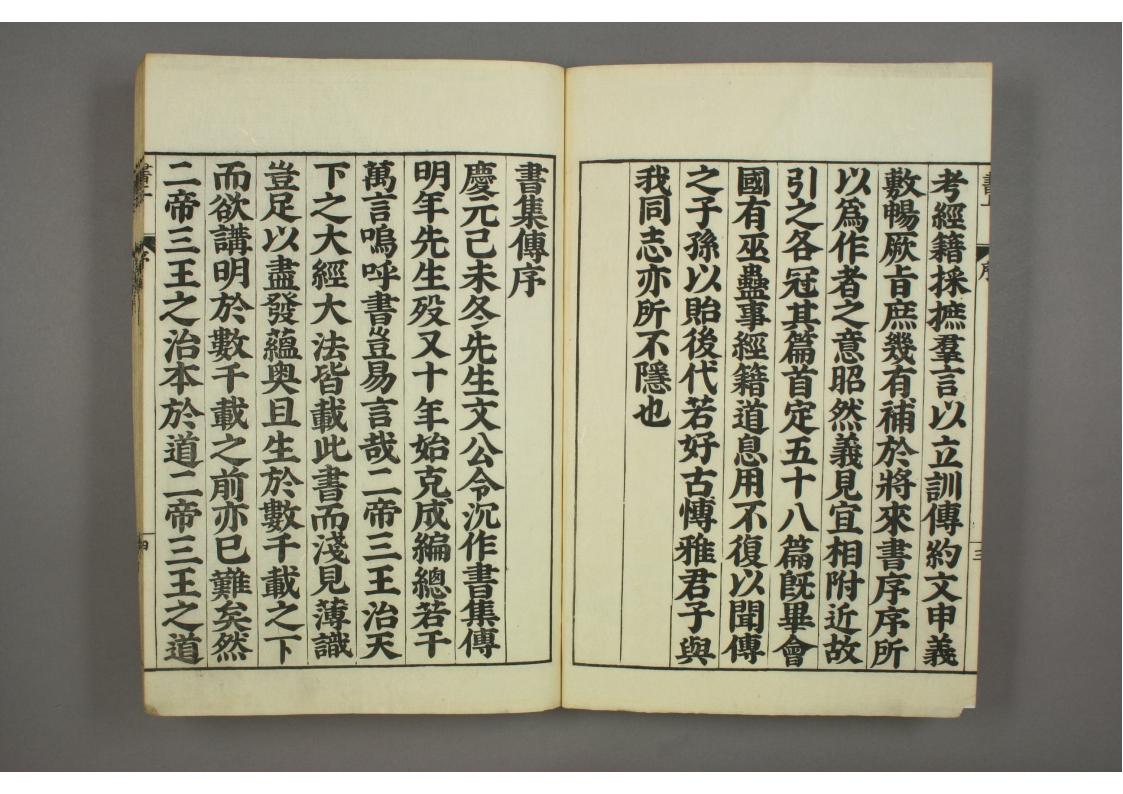 考經籍採摭羣言以立訓傳約文申義
敷暢厥旨庶幾有補於將來書序序所
以爲作者之意昭然義見宜相附近故
引之各冠其篇首定五十八篇旣畢會
國有巫蠱事經籍道息用不復以聞傳
之子孫以貽後代若好古愽雅君子與
我同志亦所不隱也
三
書集傳序
慶元己未冬先生文公令沉作書集傳
明年先生歿又十年始克成編總若干
萬言嗚呼書豈易言哉二帝三王治天
下之大經大法皆載此書而淺見薄識
豈足以盡發蘊奥且生於數千載之下
而欲講明於數千載之前亦已難矣然
二帝三王之治本於道二帝三王之道
序
四